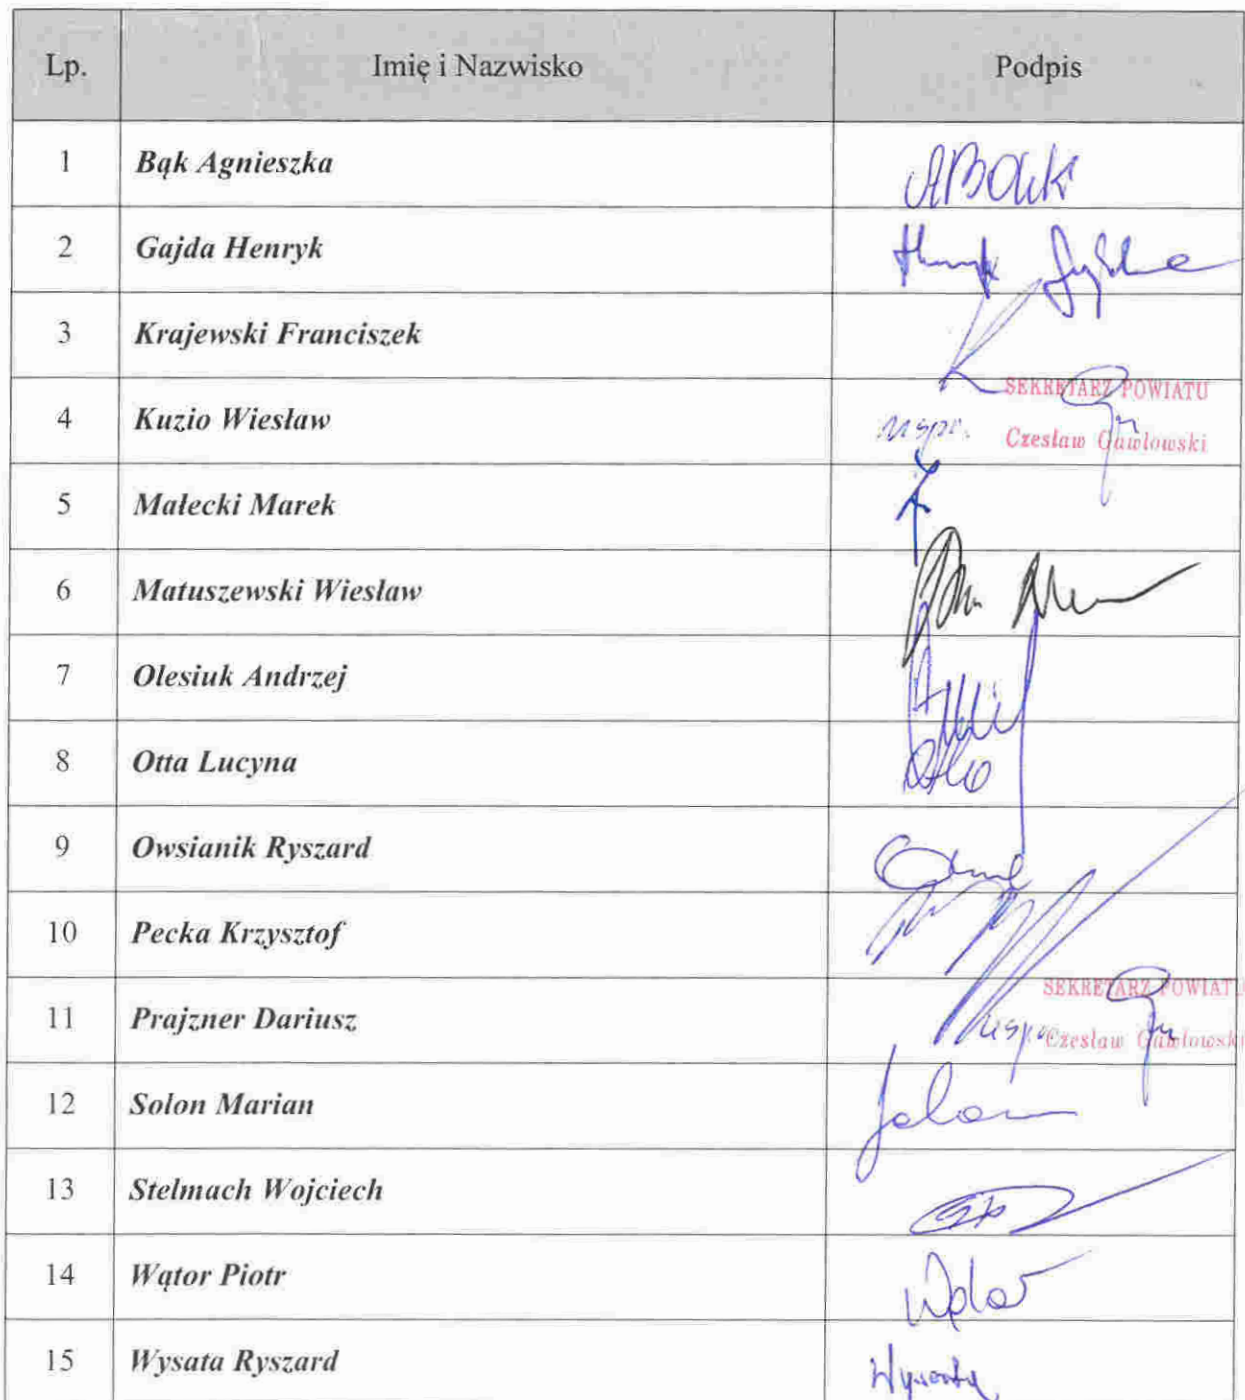 Lp. Imię i Nazwisko Podpis
1 Bąk Agnieszka ABąk
2 Gajda Henryk Henryk Gajda
3 Krajewski Franciszek
SEKRETARZ POWIATU
4 Kuzio Wiesław uspr. Czesław Gawłowski
5 Małecki Marek
6 Matuszewski Wiesław
7 Olesiuk Andrzej
8 Otta Lucyna Otta
9 Owsianik Ryszard
10 Pecka Krzysztof
SEKRETARZ POWIATU
11 Prajzner Dariusz uspr. Czesław Gawłowski
12 Solon Marian Solon
13 Stelmach Wojciech
14 Wątor Piotr Wątor
15 Wysata Ryszard Wysata